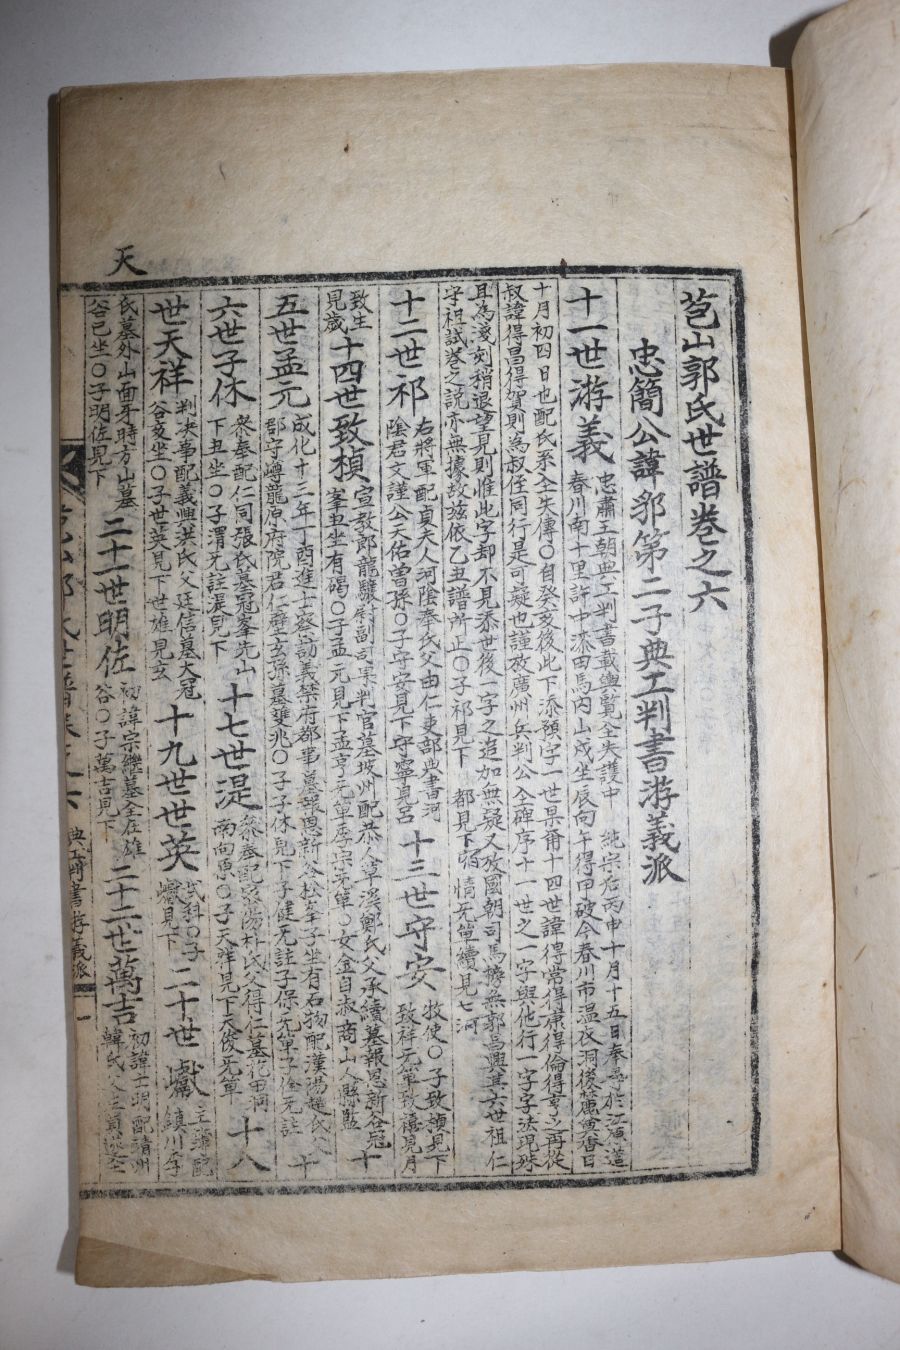 天
苞山郭氏世譜卷之六
忠簡公諱邪第二子典工判書游義派
十一世游義 忠肅王朝典工判書載輿覽全失護中 純宗后丙申十月十五日奉尋於江原道
春川南十里許中漆田馬內山戍坐辰向午得甲破今春川市溫衣洞後麓重陽日
十月初四日也配氏系仝失傳○自癸亥後此下添預字一世杲甭十四世諱得常得廉得倫得亨之再從
叔諱得昌得賀則為叔侄同行是可疑也謹攷廣州兵判公仝碑序十一世之一字與他行一字字法現殊
且為淺刻稍退望見則惟此字却不見添世後一字之追加無疑又攷國朝司馬榜無郭爲興其六世祖仁
字祖試券之說亦無據故玆依乙丑譜所止○子祁見下
十二世祁 右將軍配貞夫人河陰奉氏父由仁吏部典書河
陰君文謹公天佑曾孫○子守安見下守寧見呂
十三世守安 牧使○子致禎見下
致祥无單致禧見月
致生
見歲
十四世致禎 宣敎郎龍驤衛副司果判官墓坡州配恭人草溪鄭氏父承續墓報恩新谷冠
峯丑坐有碣○子孟元見下孟亨无單摩宗无單○女金自淑商山人縣監
十
五世孟元 成化十三年丁酉進士察訪義禁府都事墓報恩新谷松峯子坐有石物配漢陽趙氏父
郡守嶟龍原府院君仁璧玄孫墓雙兆○子子休見下子健无註子保无單子全无註
十
六世子休 參奉配仁同張氏墓冠峯先山
下丑坐○子渭无註湜見下
十七世湜 參奉配密陽朴氏父得仁墓花田洞
南向原○子天祥見下天俊无單
十八
世天祥 判决事配義興洪氏父廷信墓大冠
谷亥坐○子世英見下世雄見玄
十九世世英 武科○子
巘見下
二十世巘
氏墓外山面牙時方山墓
谷己坐○子明佐見下
二十一世明佐 初諱宗繼墓仝在雄
谷○子萬吉見下
二十二世萬吉 初諱士明配淸州
典工判書游義派
一